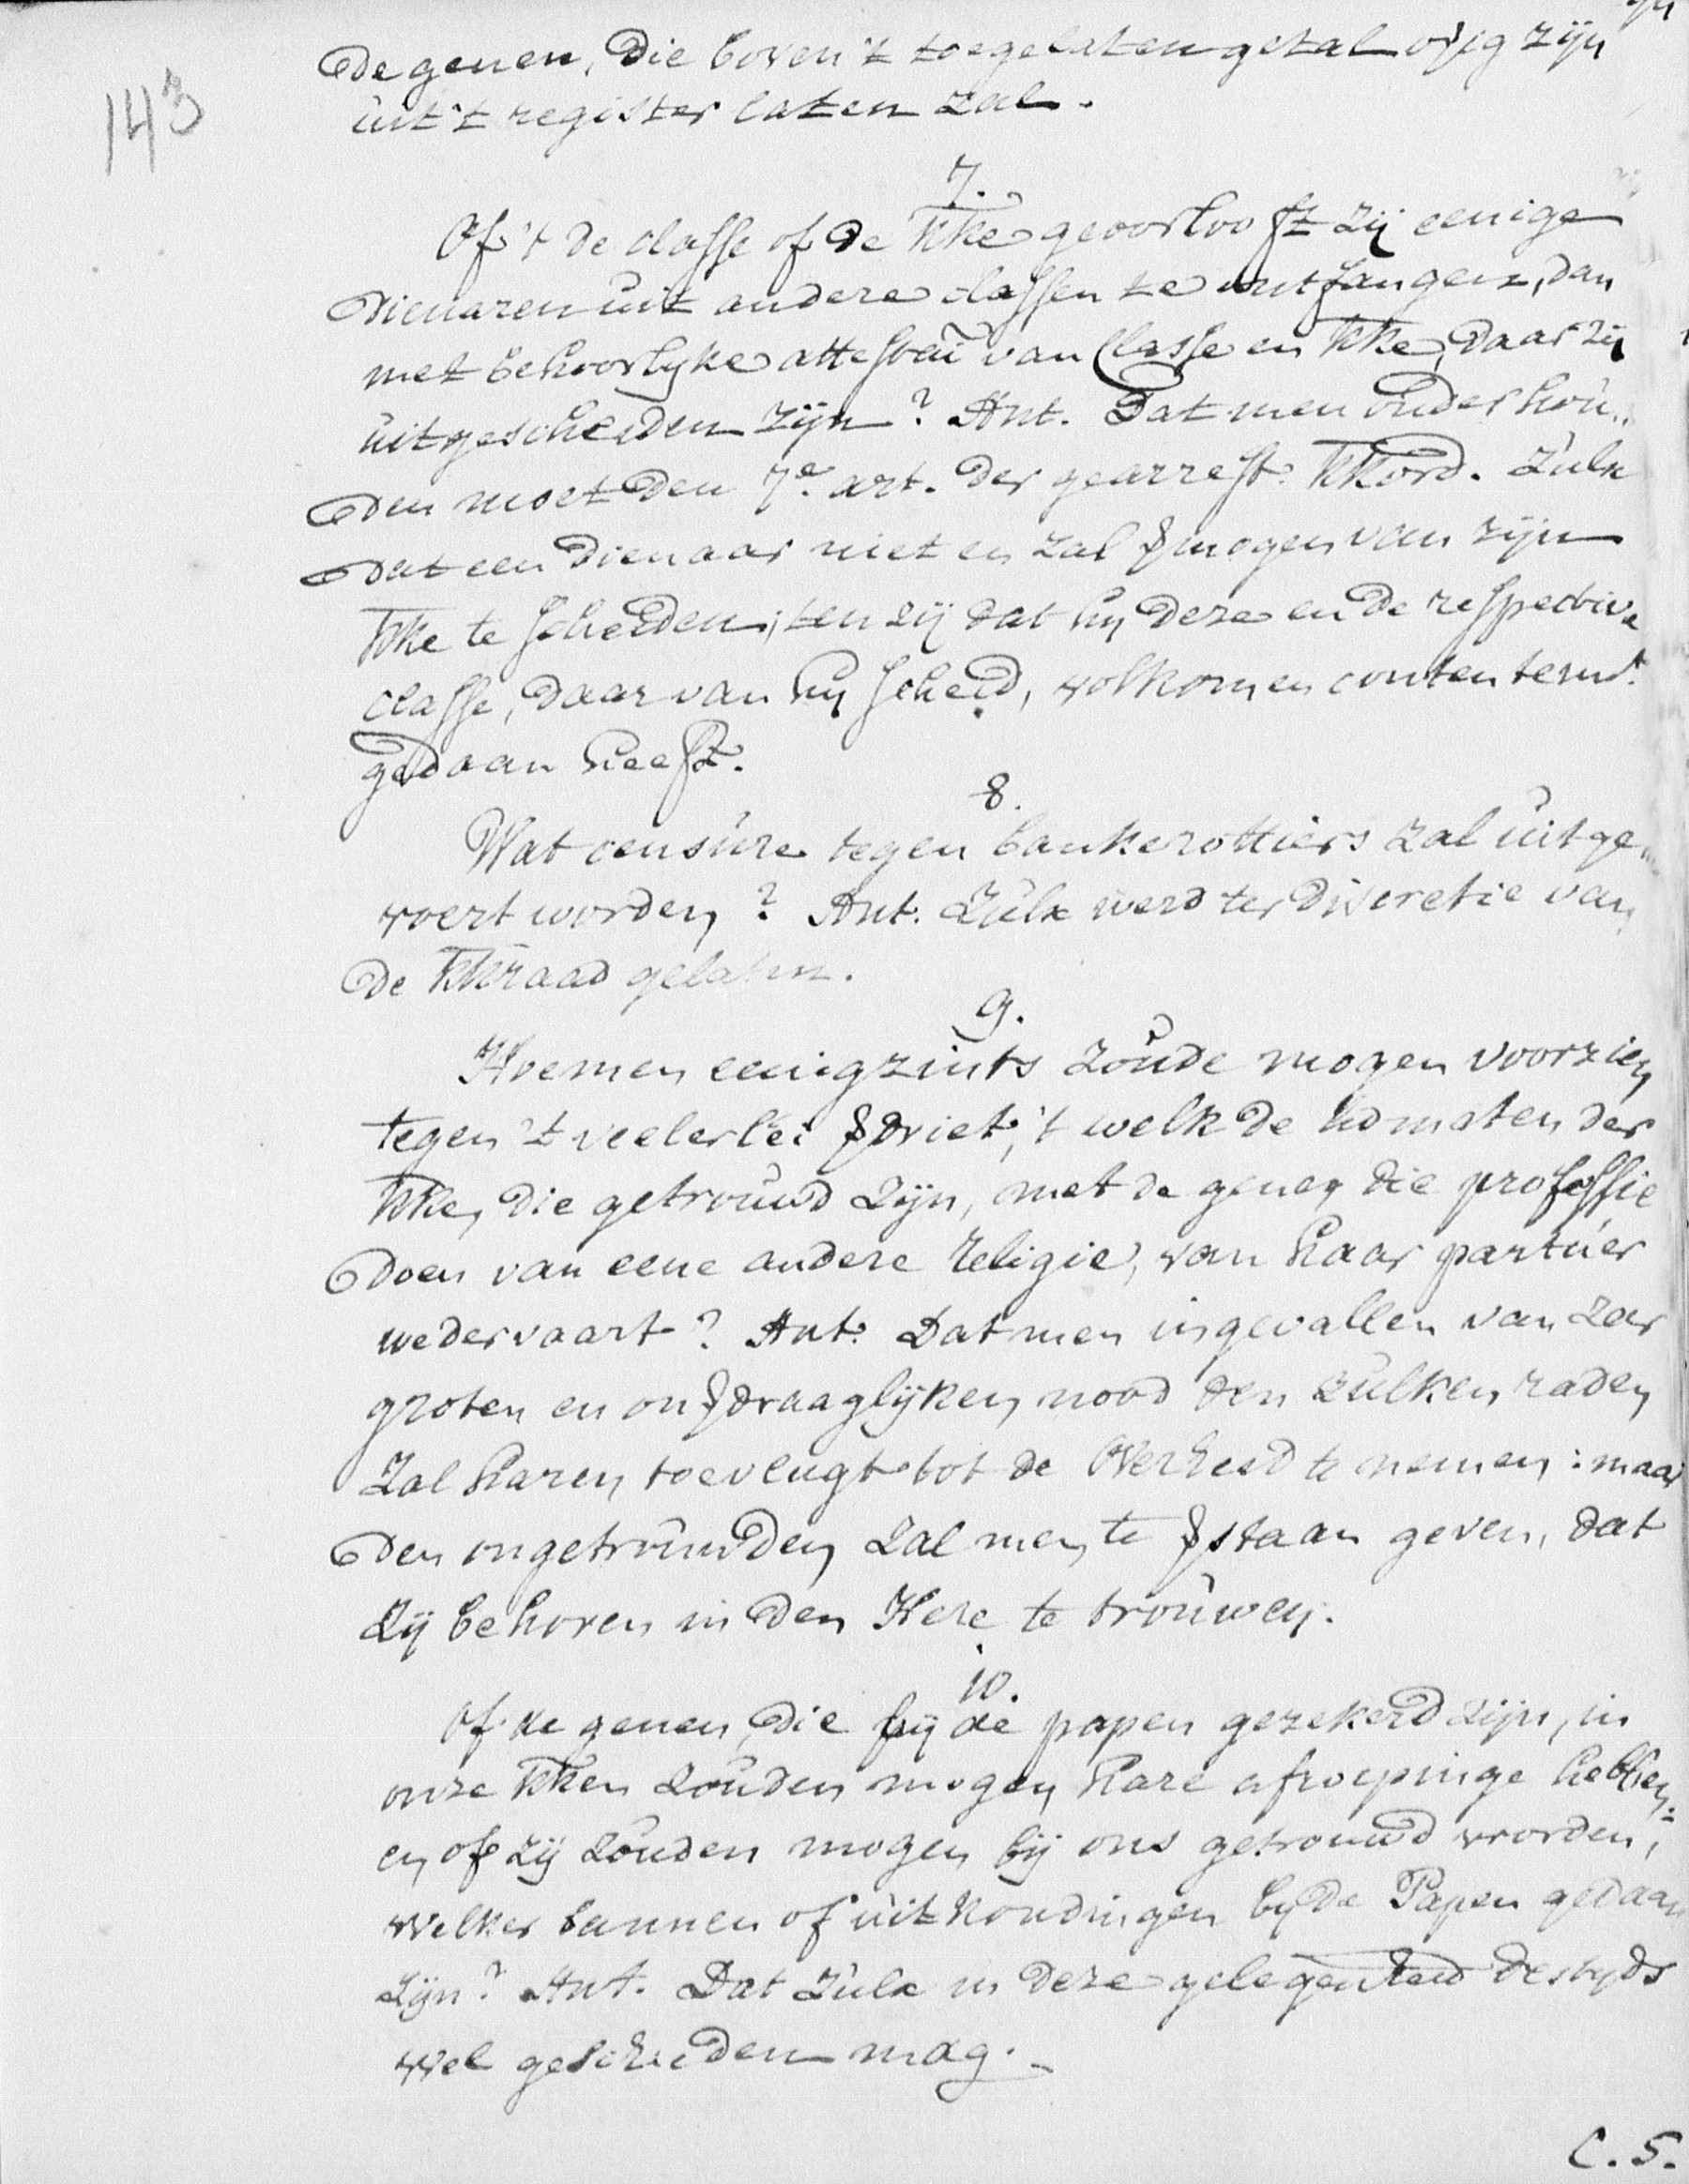 143
de genen, die boven 't toegelaten getal ovrig zijn
uit 't register laten zal.
7.
Of 't de classe of de kke geoorlooft zij eenige
dienaren uit andere classen te ontfangen, dan
met behoorlyke attestatiẽ van Classe en kke, daar zij
uitgescheiden zijn? Ant. Dat men onderhou..
den moet den 7e. art. der gearrest. kkord. Zulx
dat een dienaar niet en zal ꝟmogen van zijn
kke te scheiden, ten zij dat hij deze en de respective
classe, daar van hij scheid, volkomen contentemt.
gedaan heeft.
8.
Wat censure tegen bankerottiers zal uitge..
voert worden? Ant. Zulx werd ter discretie van
de kkraad gelaten.
9.
Hoe men eenigzints zoude mogen voorzien
tegen 't veelerlei ꝟdriet, 't welk de lidmaten der
kke, die getrouwd zijn, met de genen die professie
doen van eene andere religie, van haar partuer
wedervaart? Ant. Dat men ingevallen van zeer
groten en onꝟdraaglijken nood den zulken raden
zal haren toevlugt tot de Overheid te nemen: maar
den ongetrouwden zal men te ꝟstaan geven, dat
zij behoren in den Here te trouwen.
10.
Of de genen, die bij de papen gezekerd zijn, in
onze kken zouden mogen hare afroepinge hebben;
en of zij zouden mogen bij ons getrouwd worden,
welker bannen of uitkondingen by de Papen gedaan
zijn? Ant. Dat zulx in deze gelegenheid destyds
wel geschieden mag.
C. S.